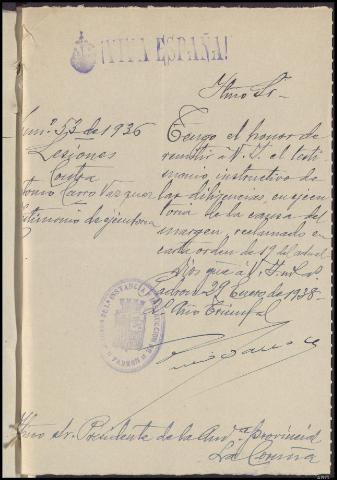 ¡VIVA ESPAÑA!
Iltmo Sr.
Num.º 53 de 1936
Lesiones
Contra
Carro Vazquez
Testimonio de ejecutoria
Tengo el honor de
remitir á V. I. el testi
monio, instructivo de
las diligencias, en ejecu
toria de la causa del
margen, reclamado en
carta orden de 19 del actual
Dios gue á V. I. m. as
Padron 29 Enero de 1938
2º Año Triunfal
Iltmo Sr. Presidente de la Aud.ª provincial
La Coruña